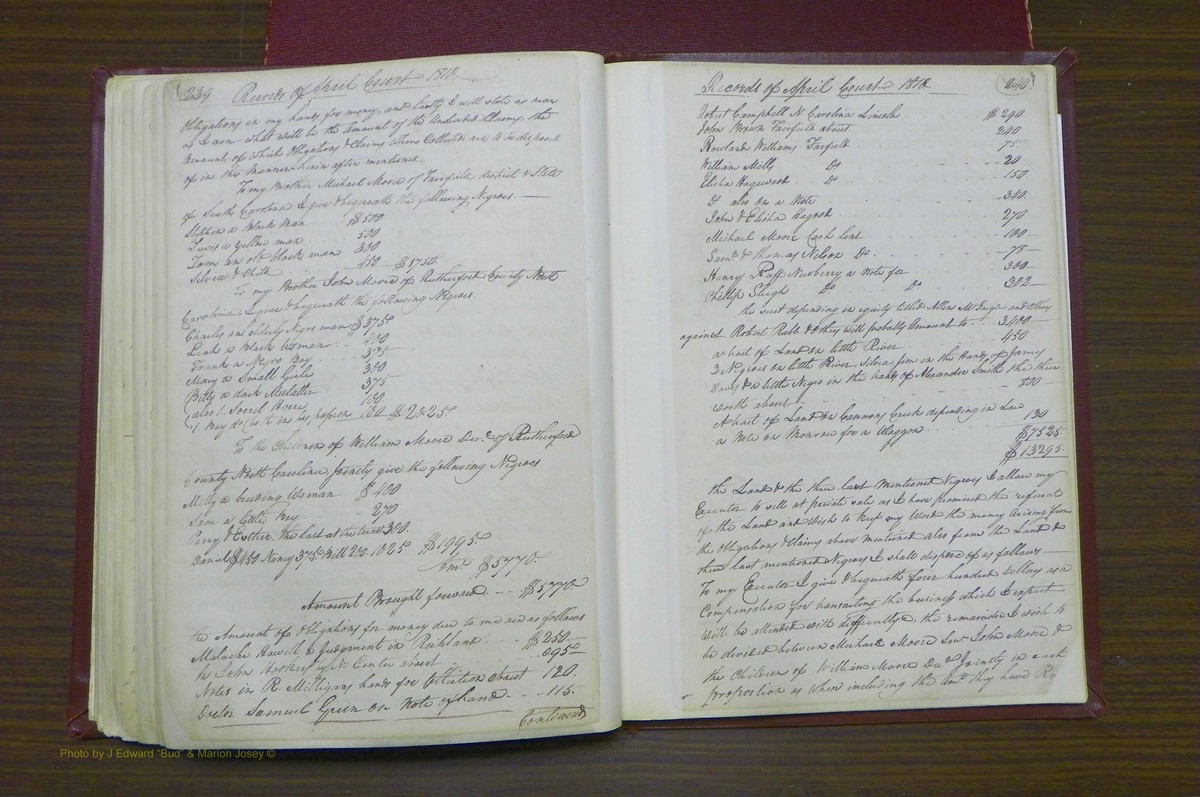 239 Records of April Court 1810
Obligations in my hands for money, and lastly I will state as near
as I can what will be the Amount of the Undivided Claims, the
Amount of which Obligations & Claims when Collected are to be disposed
of in the Manner herein after mentioned.
To my Brother Michael Moore of Fairfield district & State
of South Carolina I give & bequeath the following Negroes.
Stephen a Black Man $500
Lewis a Yellow man 500
Tom an old black man 300
Silvia & Child 450 $1750.
To my Brother John Moore of Rutherford County North
Carolina I give & bequeath the following Negroes.
Charles an Elderly Negro man $375
Leah a Black Woman 400
Frank a Negro Boy 375
Mary a Small Girl 300
Betty a dark Mulatto 375
also 1. Sorrel Horse 100
1. Bay do (both in his possession 100 $2025
To the Children of William Moore Decd. of Rutherford
County North Carolina, jointly give the following Negroes
Milly a breeding Woman $400
Sam a little Boy 270
Perry & Esther, the last at the breast 300.
Daniel $450 Nancy 375 Bill 200. 1025 $1995
Amt. $5770.
Amount Brought forward. $5770.
the Amount of Obligations for money due to me are as follows
Malachi Howell & Judgment in Richland $250
John N. Center about 095
Notes in R. Milligans hands for Collection about 120.
Doctor Samuel Green on Note of hand 115.
Continued
Records of April Court 1810 240
Robert Campbell N. Carolina Lincoln $290.
John Brown Fairfield about 240
Rowland Williams Fairfield 75
William Mills Do 20
Elisha Hagewood Do 150
Do also on a Note 340.
John & Elisha Hagood 270
Michael Moore Cash lent 100
Saml. & Thomas Nelson Do 78
Henry Ruff Newberry a Note for 300
Phillip Sligh Do Do 302
the suit depending in equity titled Allen McFargin and others
against Robert Rabb & they will probably Amount to 3400
a part of Land on little River 450
3 Negroes on little River, Silvia, in the hands of James
Davis & a little Negro in the hands of Alexander Smith the three
worth about 800
A part of Land on Cannons Creek depending in Law
a Note on Monrow for a Waggon 130
$7525
$13295.
the Land & the three last Mentioned Negroes I allow my
Executor to sell at private sale as I have promised the refusal
of the Land and Wish to keep my Word the money arising from
the Obligations & Claims above Mentioned also from the Land &
three last mentioned Negroes I shall dispose of as follows
To my Executor I give & bequeath four hundred dollars as a
Compensation for transacting the business which I expect
Will be attended with difficulty & the remainder I wish to
be devided between Michael Moore Senr. John Moore &
the Children of William Moore Decd. Jointly in each
proportion as when including the Amt. they have
Photo by J Edward "Bud" & Marion Josey ©